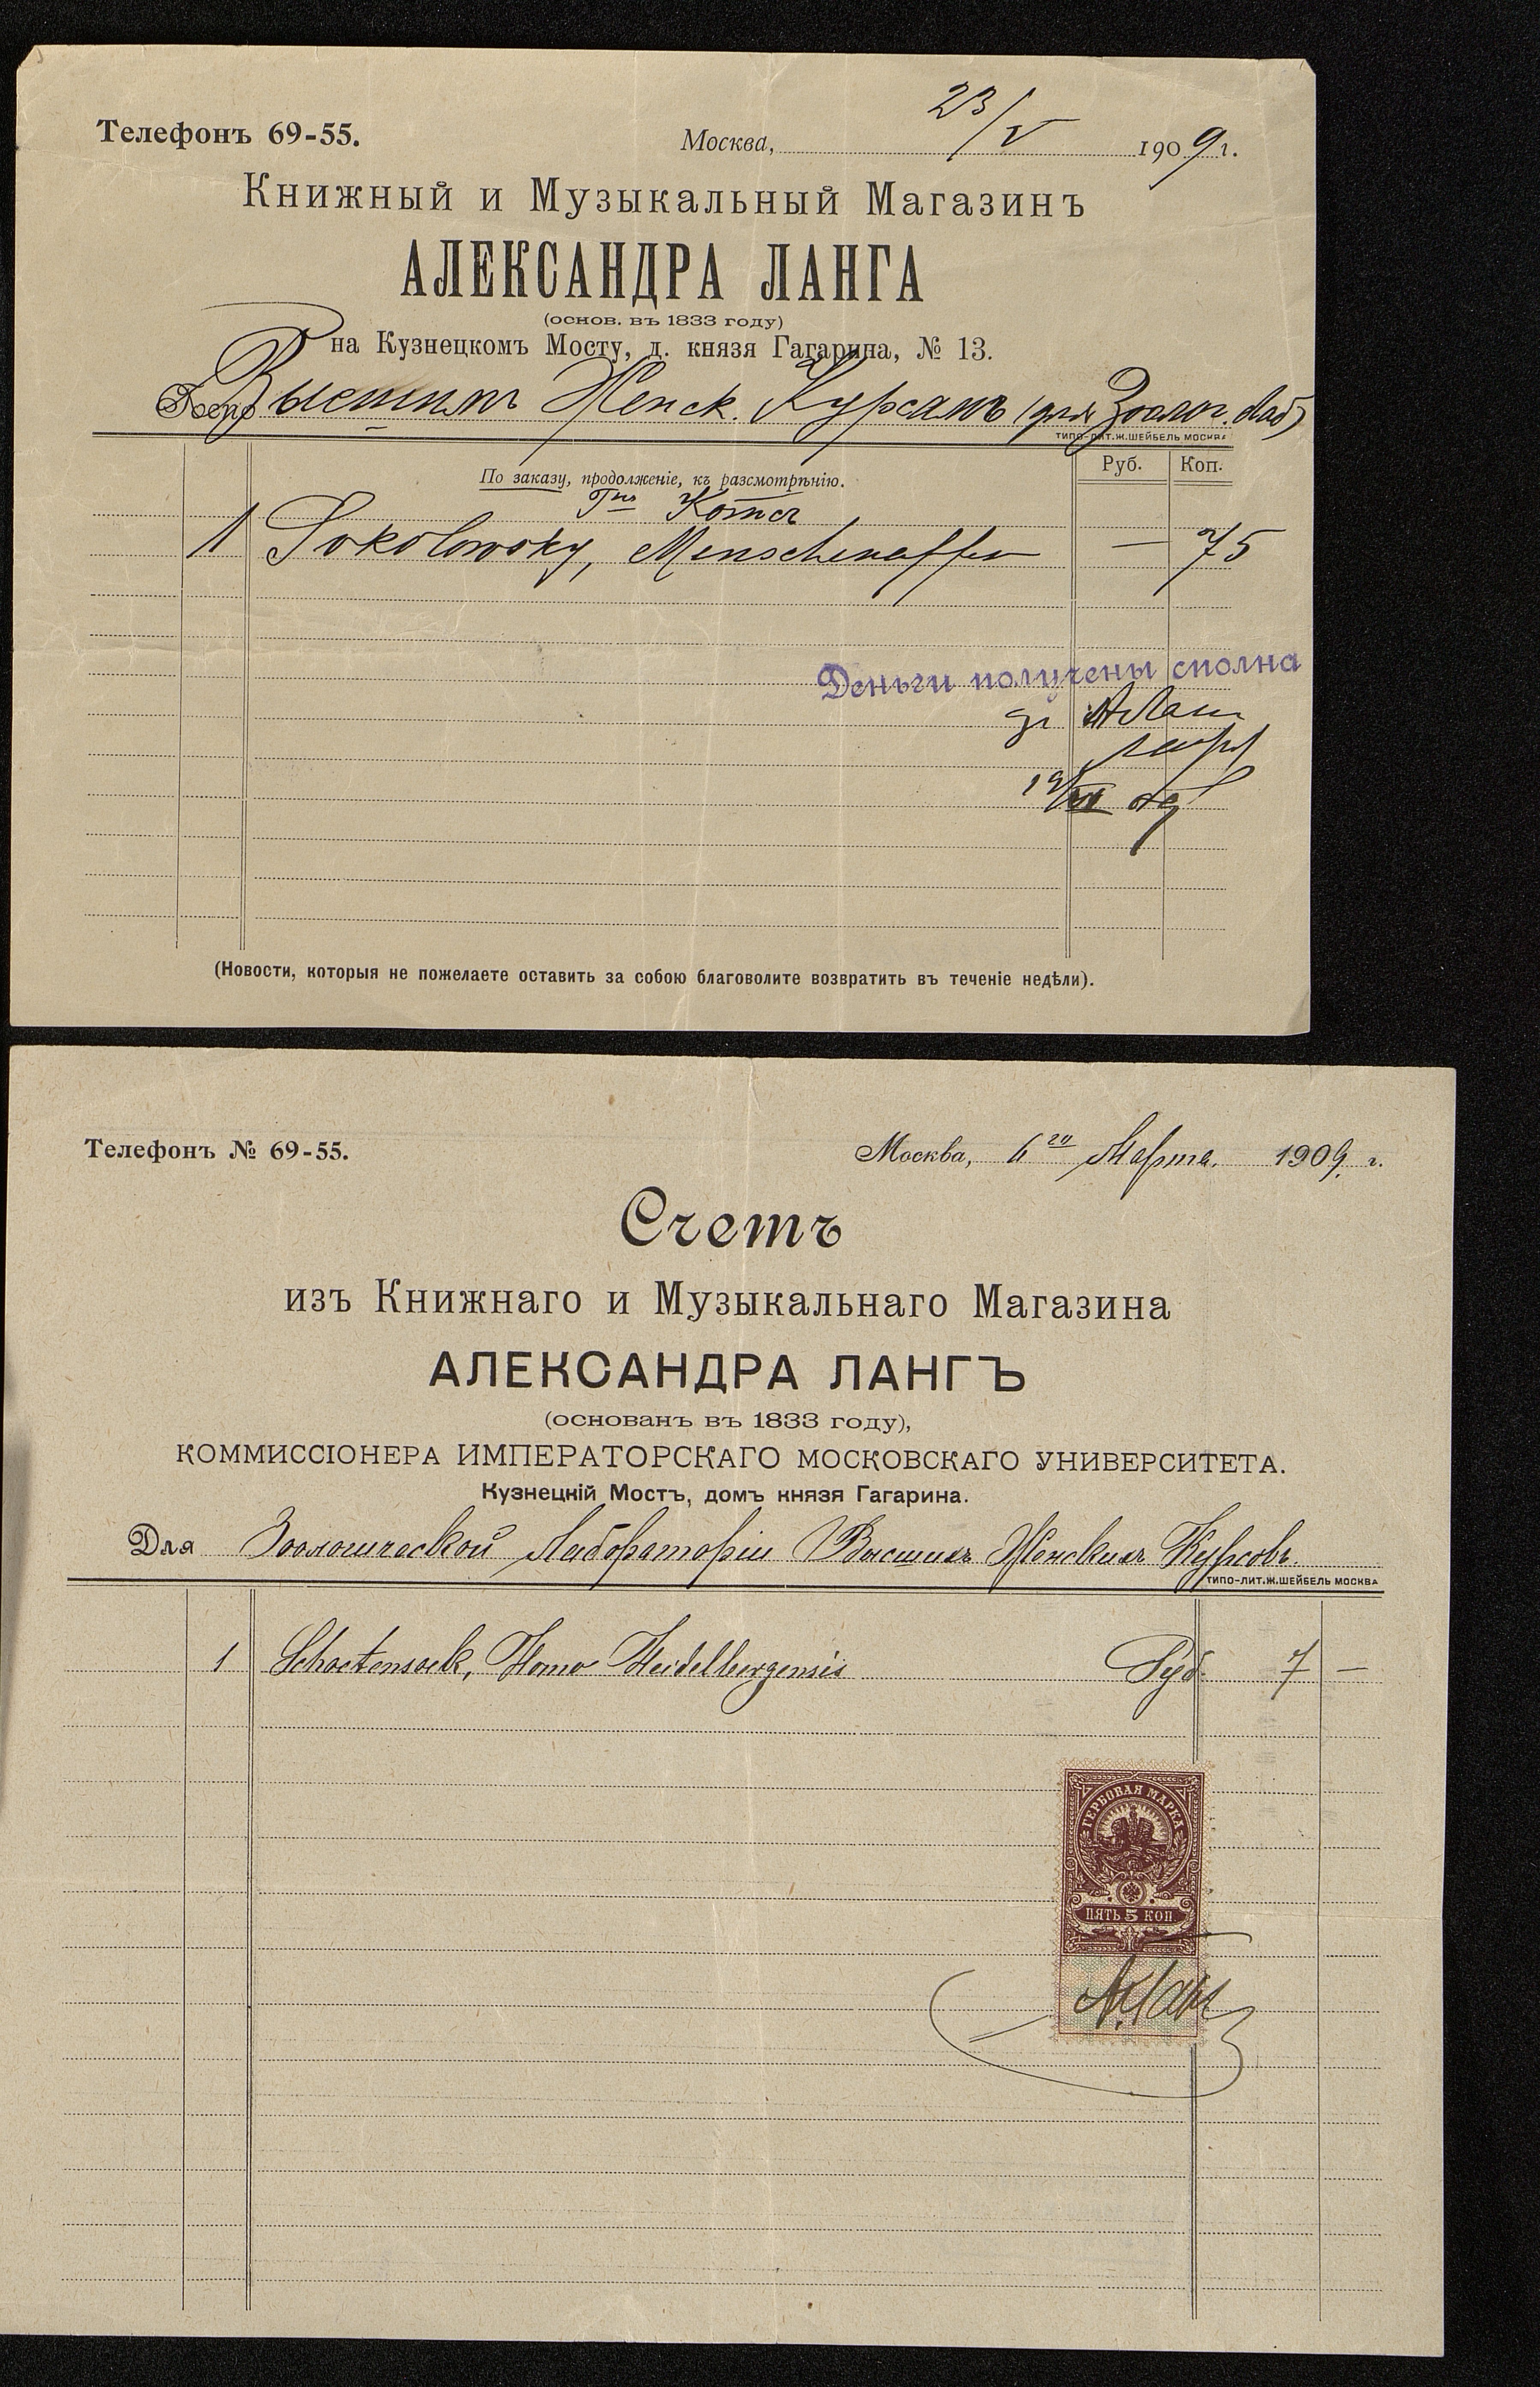 Телефонъ 69-55.
Москва, 23/V 1909 г.
Книжный и Музыкальный Магазинъ
АЛЕКСАНДРА ЛАНГА
(основ. въ 1833 году)
на Кузнецкомъ Мосту, д. князя Гагарина, № 13.
Высшимъ Женск. Курсамъ (для Зоолог. Лаб)
ТИПО-ЛИТ.Ж.ШЕЙБЕЛЬ МОСКВА
Руб. Коп.
По заказу, продолженіе, къ разсмотрѣнію.
Гнъ Котсъ
1 Sokolowsky, Menschenaffen — 75
Деньги получены сполна
(Новости, которыя не пожелаете оставить за собою благоволите возвратить въ теченіе недѣли).
Телефонъ № 69-55.
Москва, 6го Марта 1909 г.
Счетъ
изъ Книжнаго и Музыкальнаго Магазина
АЛЕКСАНДРА ЛАНГЪ
(основанъ въ 1833 году),
КОММИССІОНЕРА ИМПЕРАТОРСКАГО МОСКОВСКАГО УНИВЕРСИТЕТА.
Кузнецкій Мостъ, домъ князя Гагарина.
Для Зоологической Лабораторіи Высшихъ Женскихъ Курсовъ.
ТИПО-ЛИТ.Ж.ШЕЙБЕЛЬ МОСКВА
1 Schoetensack, Homo Heidelbergensis Руб. 7 —
ГЕРБОВАЯ МАРКА
ПЯТЬ 5 КОП
А.Ланг